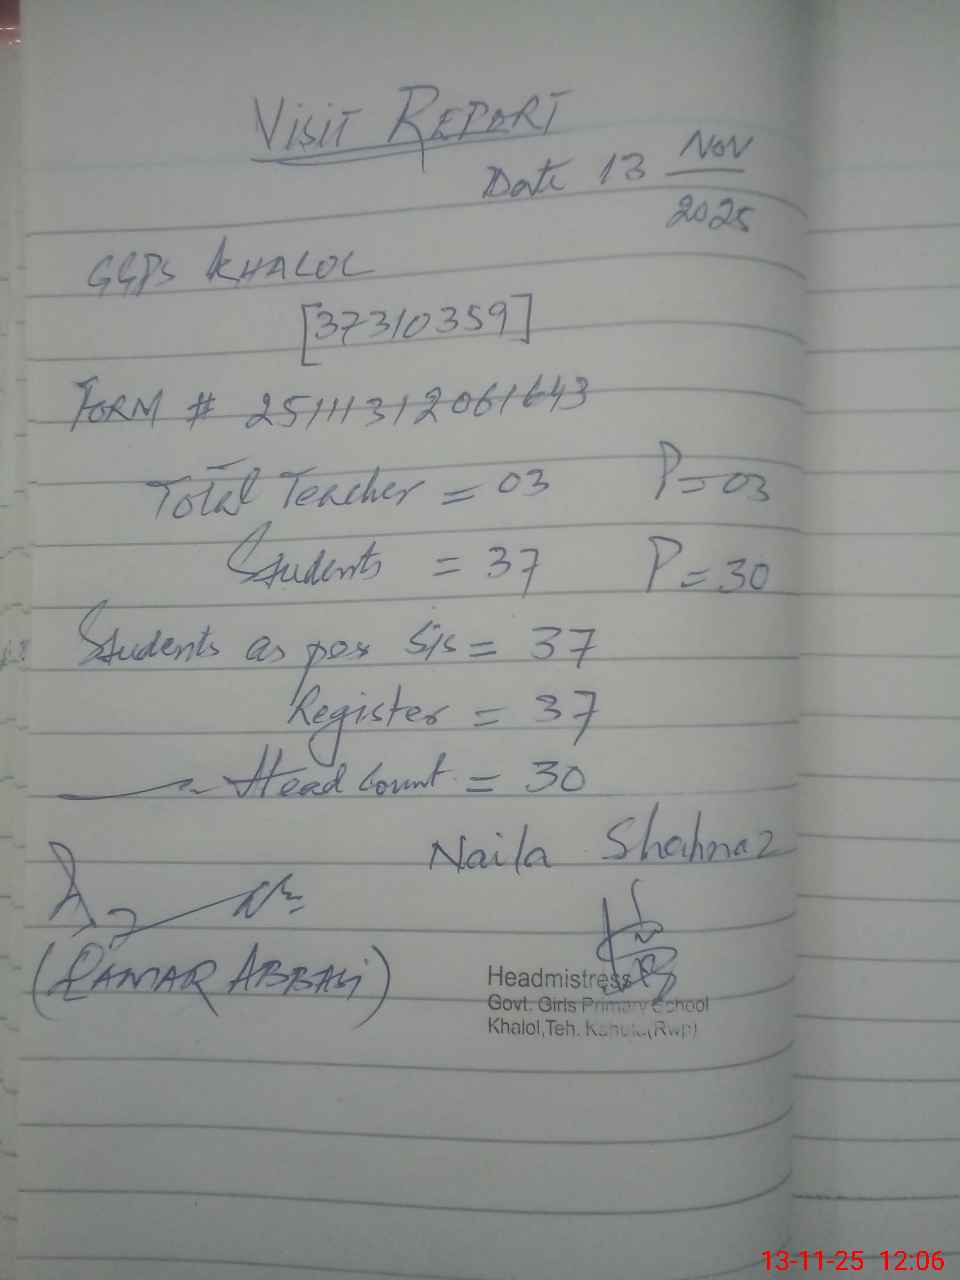 VISIT REPORT
Date 13 Nov
2025
GGPS KHALOL
[37310359]
FORM # 25111312061643
Total Teacher = 03 P=03
Students = 37 P=30
Students as per SIS = 37
Register = 37
Head Count = 30
Naila Shahnaz
(QAMAR ABBAS)
Headmistress
Govt. Girls Primary School
Khalol,Teh. (Rwp)
13-11-25 12:06